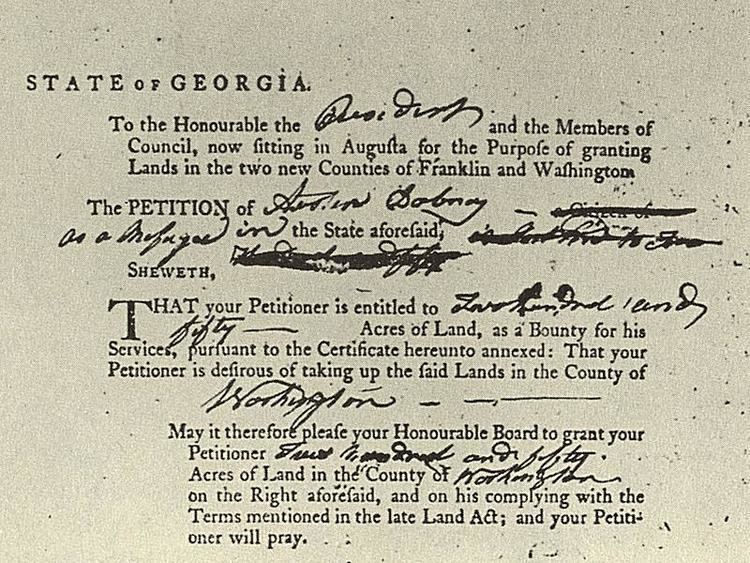 STATE OF GEORGIA.
To the Honourable the President and the Members of
Council, now sitting in Augusta for the Purpose of granting
Lands in the two new Counties of Franklin and Washington
The PETITION of Austin Dabney
as a Refugee in the State aforesaid,
SHEWETH,
THAT your Petitioner is entitled to Two hundred and
fifty Acres of Land, as a Bounty for his
Services, pursuant to the Certificate hereunto annexed: That your
Petitioner is desirous of taking up the said Lands in the County of
Washington
May it therefore please your Honourable Board to grant your
Petitioner Two Hundred and fifty
Acres of Land in the County of Washington
on the Right aforesaid, and on his complying with the
Terms mentioned in the late Land Act; and your Petiti-
oner will pray.